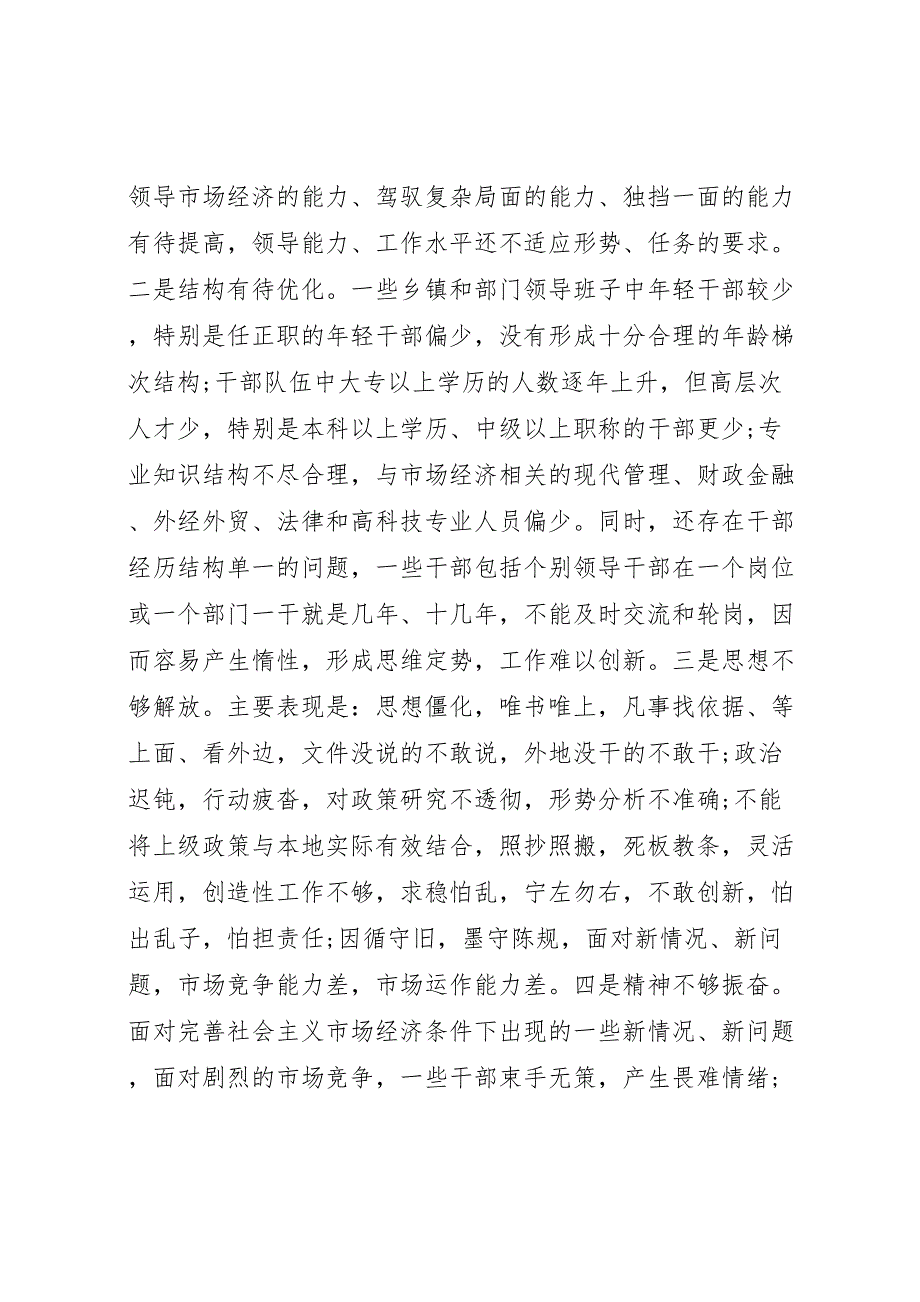 领导市场经济的能力、驾驭复杂局面的能力、独挡一面的能力
有待提高，领导能力、工作水平还不适应形势、任务的要求。
二是结构有待优化。一些乡镇和部门领导班子中年轻干部较少
，特别是任正职的年轻干部偏少，没有形成十分合理的年龄梯
次结构;干部队伍中大专以上学历的人数逐年上升，但高层次
人才少，特别是本科以上学历、中级以上职称的干部更少;专
业知识结构不尽合理，与市场经济相关的现代管理、财政金融
、外经外贸、法律和高科技专业人员偏少。同时，还存在干部
经历结构单一的问题，一些干部包括个别领导干部在一个岗位
或一个部门一干就是几年、十几年，不能及时交流和轮岗，因
而容易产生惰性，形成思维定势，工作难以创新。三是思想不
够解放。主要表现是：思想僵化，唯书唯上，凡事找依据、等
上面、看外边，文件没说的不敢说，外地没干的不敢干;政治
迟钝，行动疲沓，对政策研究不透彻，形势分析不准确;不能
将上级政策与本地实际有效结合，照抄照搬，死板教条，灵活
运用，创造性工作不够，求稳怕乱，宁左勿右，不敢创新，怕
出乱子，怕担责任;因循守旧，墨守陈规，面对新情况、新问
题，市场竞争能力差，市场运作能力差。四是精神不够振奋。
面对完善社会主义市场经济条件下出现的一些新情况、新问题
，面对剧烈的市场竞争，一些干部束手无策，产生畏难情绪;